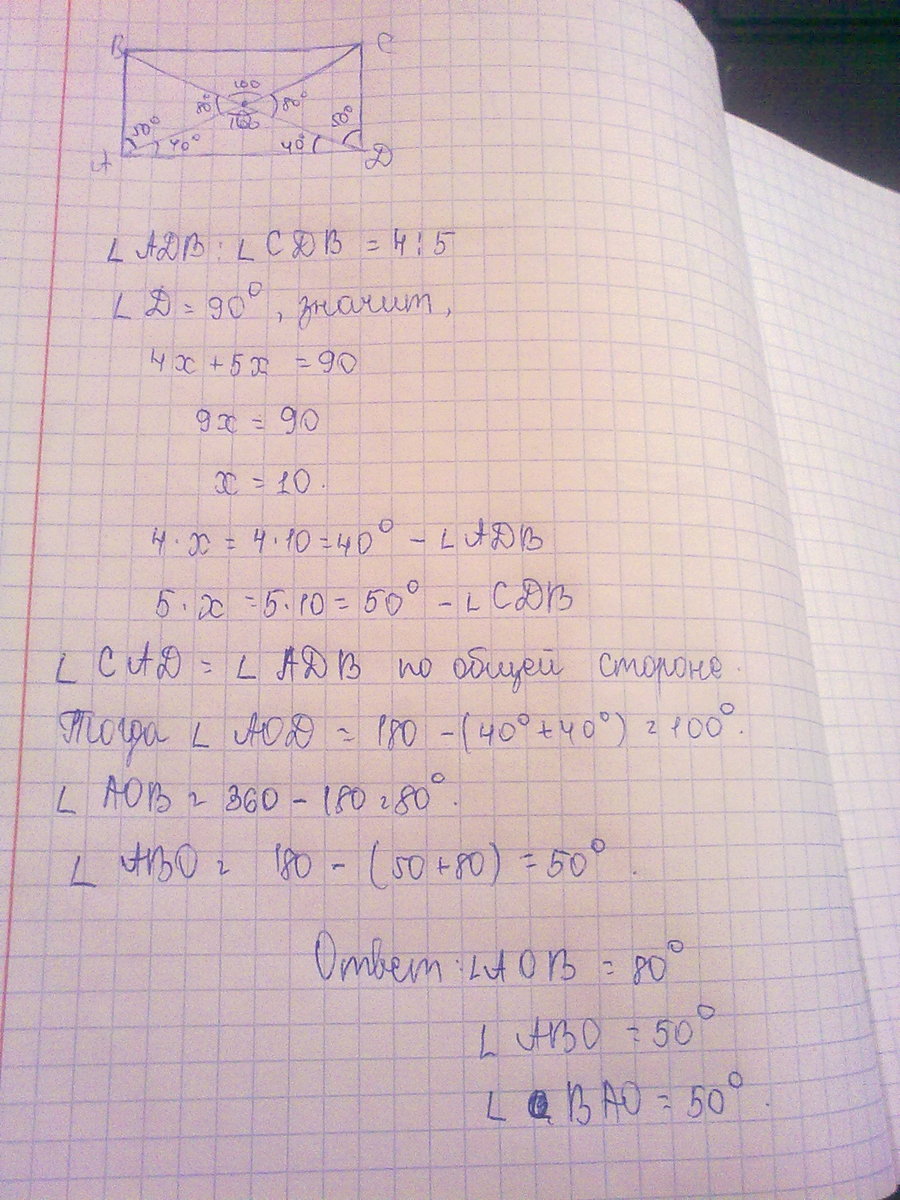 B C
100
80° 80°
100
50° 50°
40° 40°
A D
∠ ADB : ∠ CDB = 4:5
∠ D = 90°, значит,
4x + 5x = 90
9x = 90
x = 10.
4·x = 4·10 = 40° – ∠ ADB
5·x = 5·10 = 50° – ∠ CDB
∠ CAD = ∠ ADB по общей стороне.
Тогда ∠ AOD = 180 – (40° + 40°) = 100°.
∠ AOB = 360 – 180 = 80°.
∠ ABO = 180 – (50 + 80) = 50°.
Ответ: ∠AOB = 80°
∠ ABO = 50°
∠ BAO = 50°.